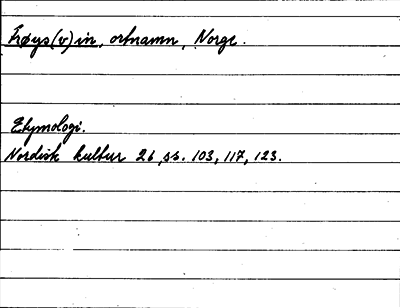 Frøys(v)in, ortnamn, Norge.
Etymologi.
Nordisk kultur 26, ss. 103, 117, 123.